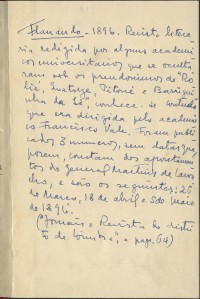 Flanando - 1896. Revista literá-
ria redigida por alguns academi-
cos universitarios que se oculta-
ram sob os pseudonimos de "Ro-
", e Barrigui-
nha da Sé", conhece-se contudo
que era dirigida pelo academi-
co Francisco Vale. Foram publi-
cados 3 numeros, sem data, que,
porem, constam dos apontamentos
do General Martins de Carva-
lho, e são os seguintes: 26
de Março, 18 de abril e 5 de Maio
de 1896.
("Jornais e Revistas do distri-
to de Coimbra", a pags. 64)